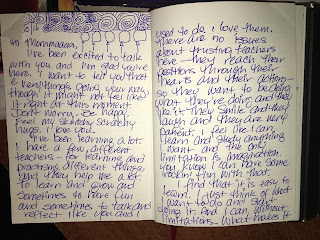 Hi Mommaaaa,
I've been excited to talk
with you and I'm glad you're
here. I want to tell you that
everything's going your way
though it might not feel like
it right at this moment.
Don't worry. Be happy.
Feel my slobbery scratchy
hugs. I love you.
I've been learning a lot.
I have a few different
teachers - for learning and
practicing different things
and they help me a lot
to learn and grow and
sometimes to have fun
and sometimes to talk and
reflect like you and I
used to do. I love them.
There are no issues
about trusting teachers
here - they reach their
positions through their
hearts and their actions -
so they want to be doing
what they're doing and they
like it. They smile and they
laugh and they are very
patient. I feel like I can
learn and study anything
I want and the only
limitation is imagination.
You know I can have some
rockin' fun with that.
I find that it is easy to
learn. I just think of what
I want to do and start
doing it and I can, without
limitations. What makes it